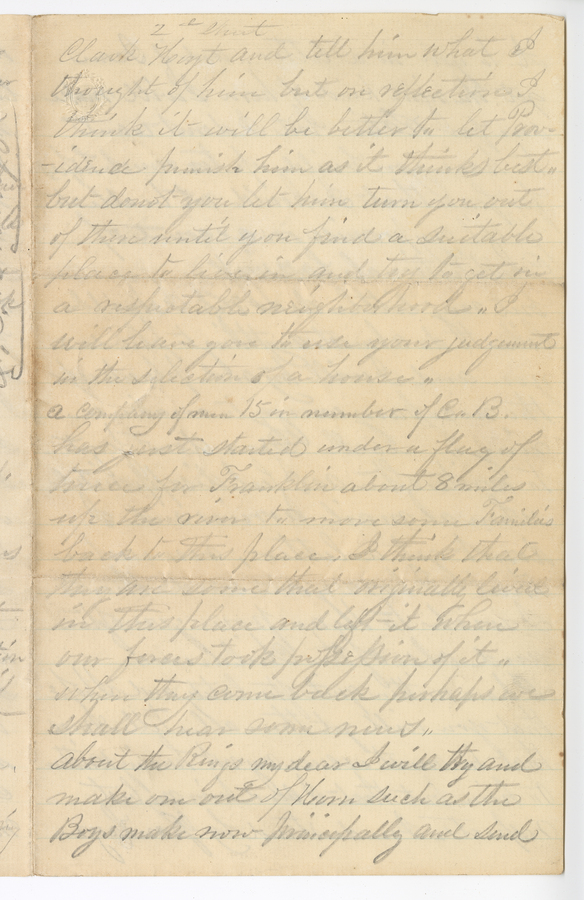 2d Sheet
Clark Hoyt and tell him what I
thought of him but on reflection I
think it will be better to let Prov-
-idence punish him as it thinks best"
but donot you let him turn you out
of there until you find a suitable
place to live in and try to get in
a respectable neighborhood " I
will leave you to use your judgement
in the selection of a house "
a company of men 15 in number of Co B.
has just started under a flag of
truce for Franklin about 8 miles
up the river to move some Families
back to this place. I think that
they are some that originally lived
in this place and left it when
our forces took possession of it "
when they come back perhaps we
shall hear some news "
about the Rings my dear I will try and
make one out of Horn such as the
Boys make now principally and send